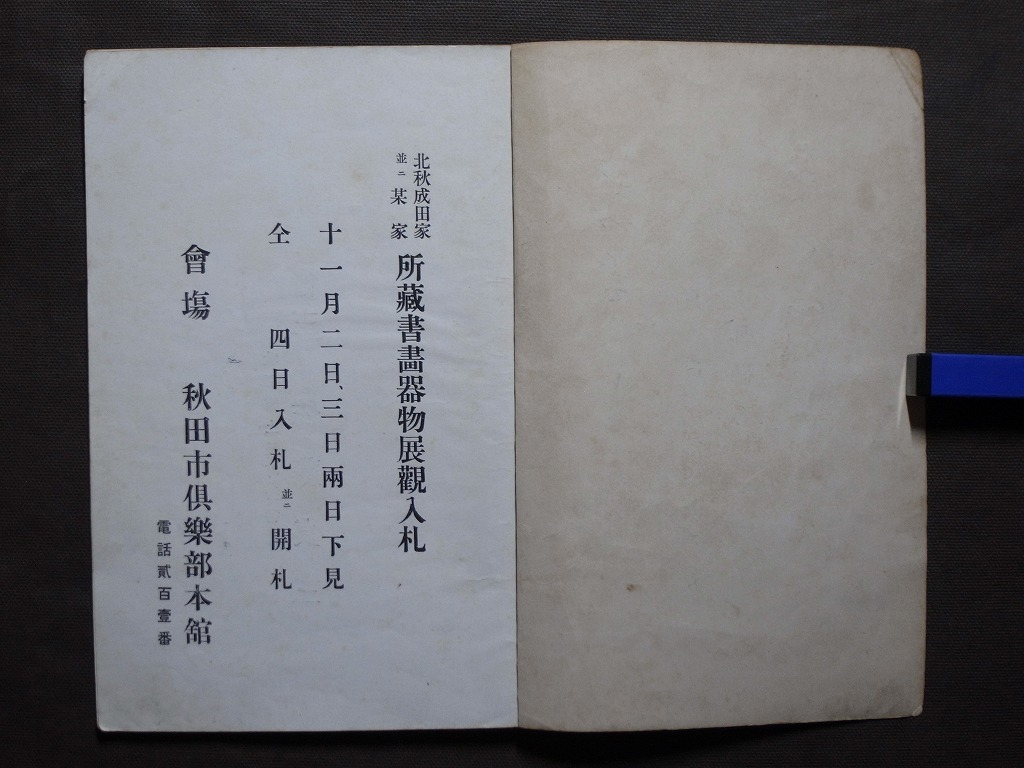 北秋成田家
並ニ 某家
所藏書畵器物展觀入札
十一月二日、三日兩日下見
仝 四日入札 並ニ 開札
會塲 秋田市俱樂部本舘
電話貳百壹番